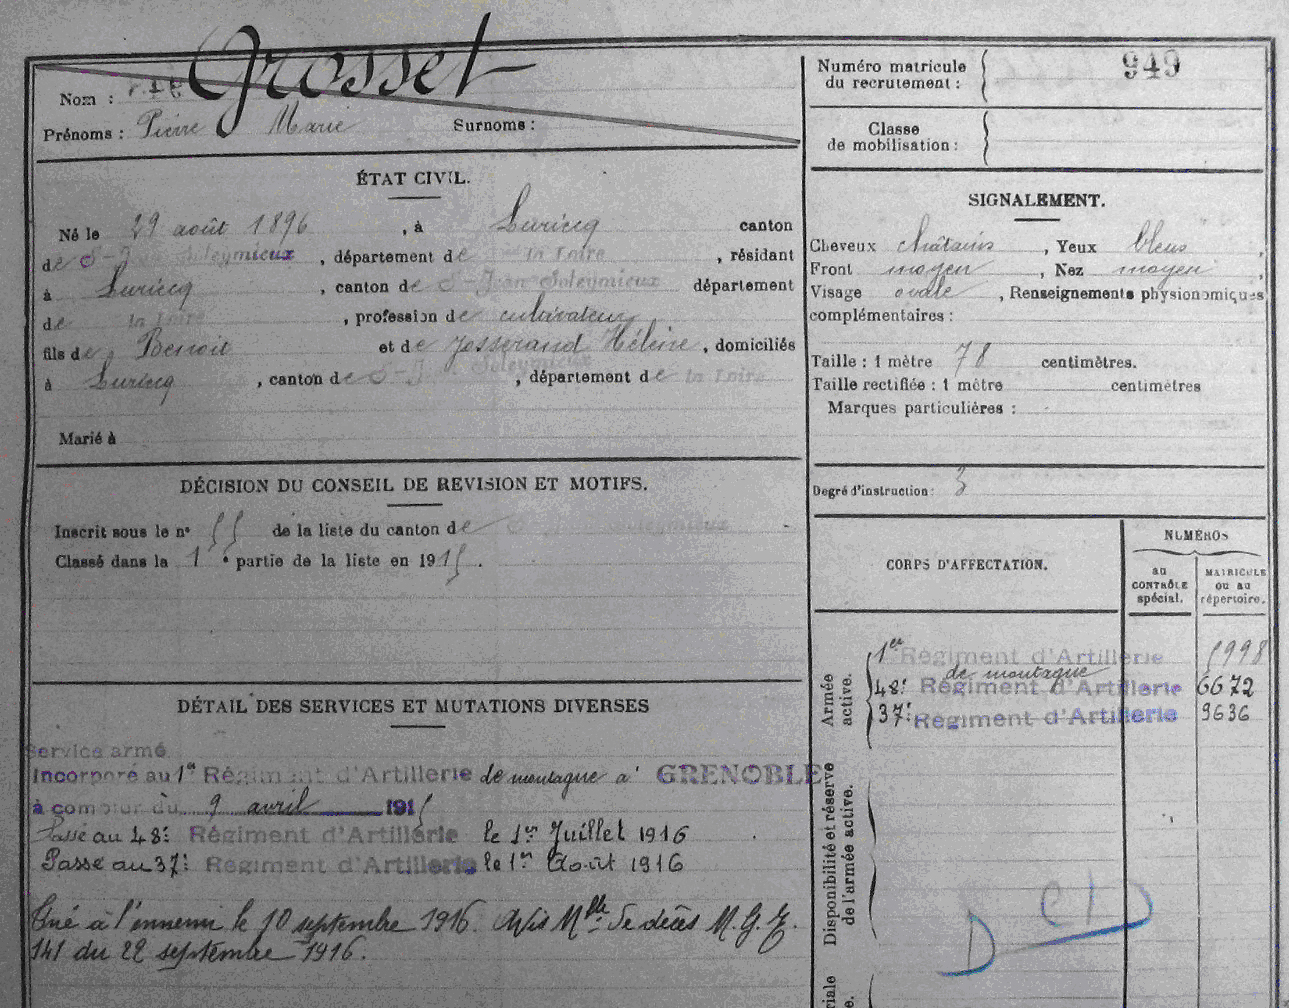 Grosset
Nom :
Prénoms : Pierre Marie Surnoms :
Numéro matricule
du recrutement : 949
Classe
de mobilisation :
ÉTAT CIVIL.
Né le 29 août 1896, à Luriecq canton
de St-Jean Soleymieux, département de la Loire, résidant
à Luriecq, canton de St-Jean Soleymieux département
de la Loire, profession de cultivateur
fils de Benoit et de Josserand Hélène, domiciliés
à Luriecq, canton de St-Jean Soleymieux, département de la Loire
Marié à
SIGNALEMENT.
Cheveux châtains, Yeux bleus,
Front moyen, Nez moyen,
Visage ovale, Renseignements physionomiques
complémentaires :
Taille : 1 mètre 78 centimètres.
Taille rectifiée : 1 mètre centimètres
Marques particulières :
Degré d'instruction : 3
DÉCISION DU CONSEIL DE REVISION ET MOTIFS.
Inscrit sous le n° 55 de la liste du canton de Soleymieux
Classé dans la 1e partie de la liste en 1915.
CORPS D'AFFECTATION.
NUMÉROS
AU CONTRÔLE spécial.
MATRICULE OU AU répertoire.
Armée active.
1er Régiment d'Artillerie 5998
de montagne
48e Régiment d'Artillerie 6672
37e Régiment d'Artillerie 9636
Disponibilité et réserve de l'armée active.
DÉTAIL DES SERVICES ET MUTATIONS DIVERSES
Service armé
Incorporé au 1er Régiment d'Artillerie de montagne à GRENOBLE
à compter du 9 avril 1915
Passé au 48e Régiment d'Artillerie le 1er Juillet 1916
Passé au 37e Régiment d'Artillerie le 1er Août 1916
Tué à l'ennemi le 10 septembre 1916. Avis Mel de décès M.G.
141 du 22 septembre 1916.